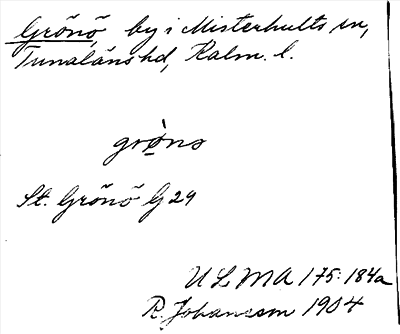 Grönö, by i Misterhults sn,
Tunaläns hd, Kalm. l.
grø̀nö
St. Grönö G 29
ULMA 175:184a
R. Johansson 1904